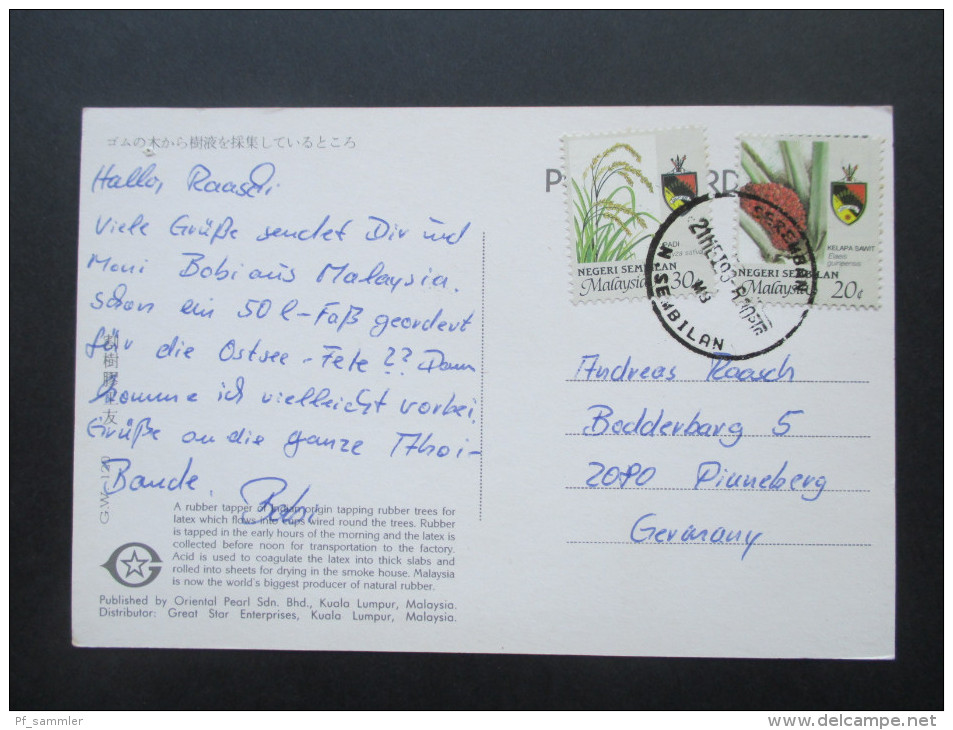 ゴムの木から樹液を採集しているところ
Hallo, Raaschi
Viele Grüße sendet Dir und
Moni Bobi aus Malaysia.
schon ein 50 l-Faß geordert
für die Ostsee-Fete?? Dann
komme ich vielleicht vorbei.
Grüße an die ganze Ahoi-
Bande,
Bobi
樹膠
友
G.W. 120
A rubber tapper of Indian origin tapping rubber trees for
latex which flows into cups wired round the trees. Rubber
is tapped in the early hours of the morning and the latex is
collected before noon for transportation to the factory.
Acid is used to coagulate the latex into thick slabs and
rolled into sheets for drying in the smoke house. Malaysia
is now the world's biggest producer of natural rubber.
Published by Oriental Pearl Sdn. Bhd., Kuala Lumpur, Malaysia.
Distributor: Great Star Enterprises, Kuala Lumpur, Malaysia.
P RD
PADI
NEGERI SEMBILAN
Malaysia 30
KELAPA SAWIT
Elaeis
guineensis
NEGERI SEMBILAN
Malaysia 20¢
SEREMBAN
N SEMBILAN
Andreas Raasch
Bodderbarg 5
2080 Pinneberg
Germany
Pf_sammler
www.delcampe.net